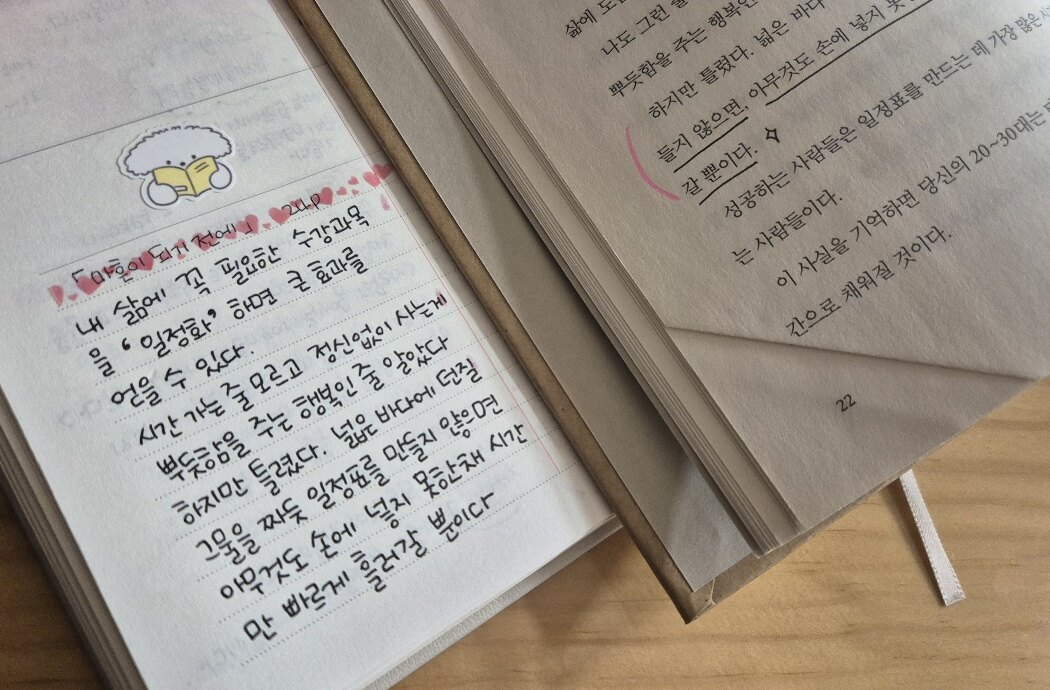 「마흔이 되기 전에」 22p
내 삶에 꼭 필요한 수강과목
을 '일정화' 하면 큰 효과를
얻을 수 있다.
시간 가는 줄 모르고 정신없이 사는게
뿌듯함을 주는 행복인 줄 알았다
하지만 틀렸다. 넓은 바다에 던질
그물을 짜듯 일정표를 만들지 않으면
아무것도 손에 넣지 못한채 시간
만 빠르게 흘러갈 뿐이다
삶에
나도 그런
뿌듯함을 주는 행복인
하지만 틀렸다. 넓은 바다
들지 않으면, 아무것도 손에 넣지 못
갈 뿐이다.
성공하는 사람들은 일정표를 만드는 데 가장 많은
는 사람들이다.
이 사실을 기억하면 당신의 20~30대는
간으로 채워질 것이다.
22